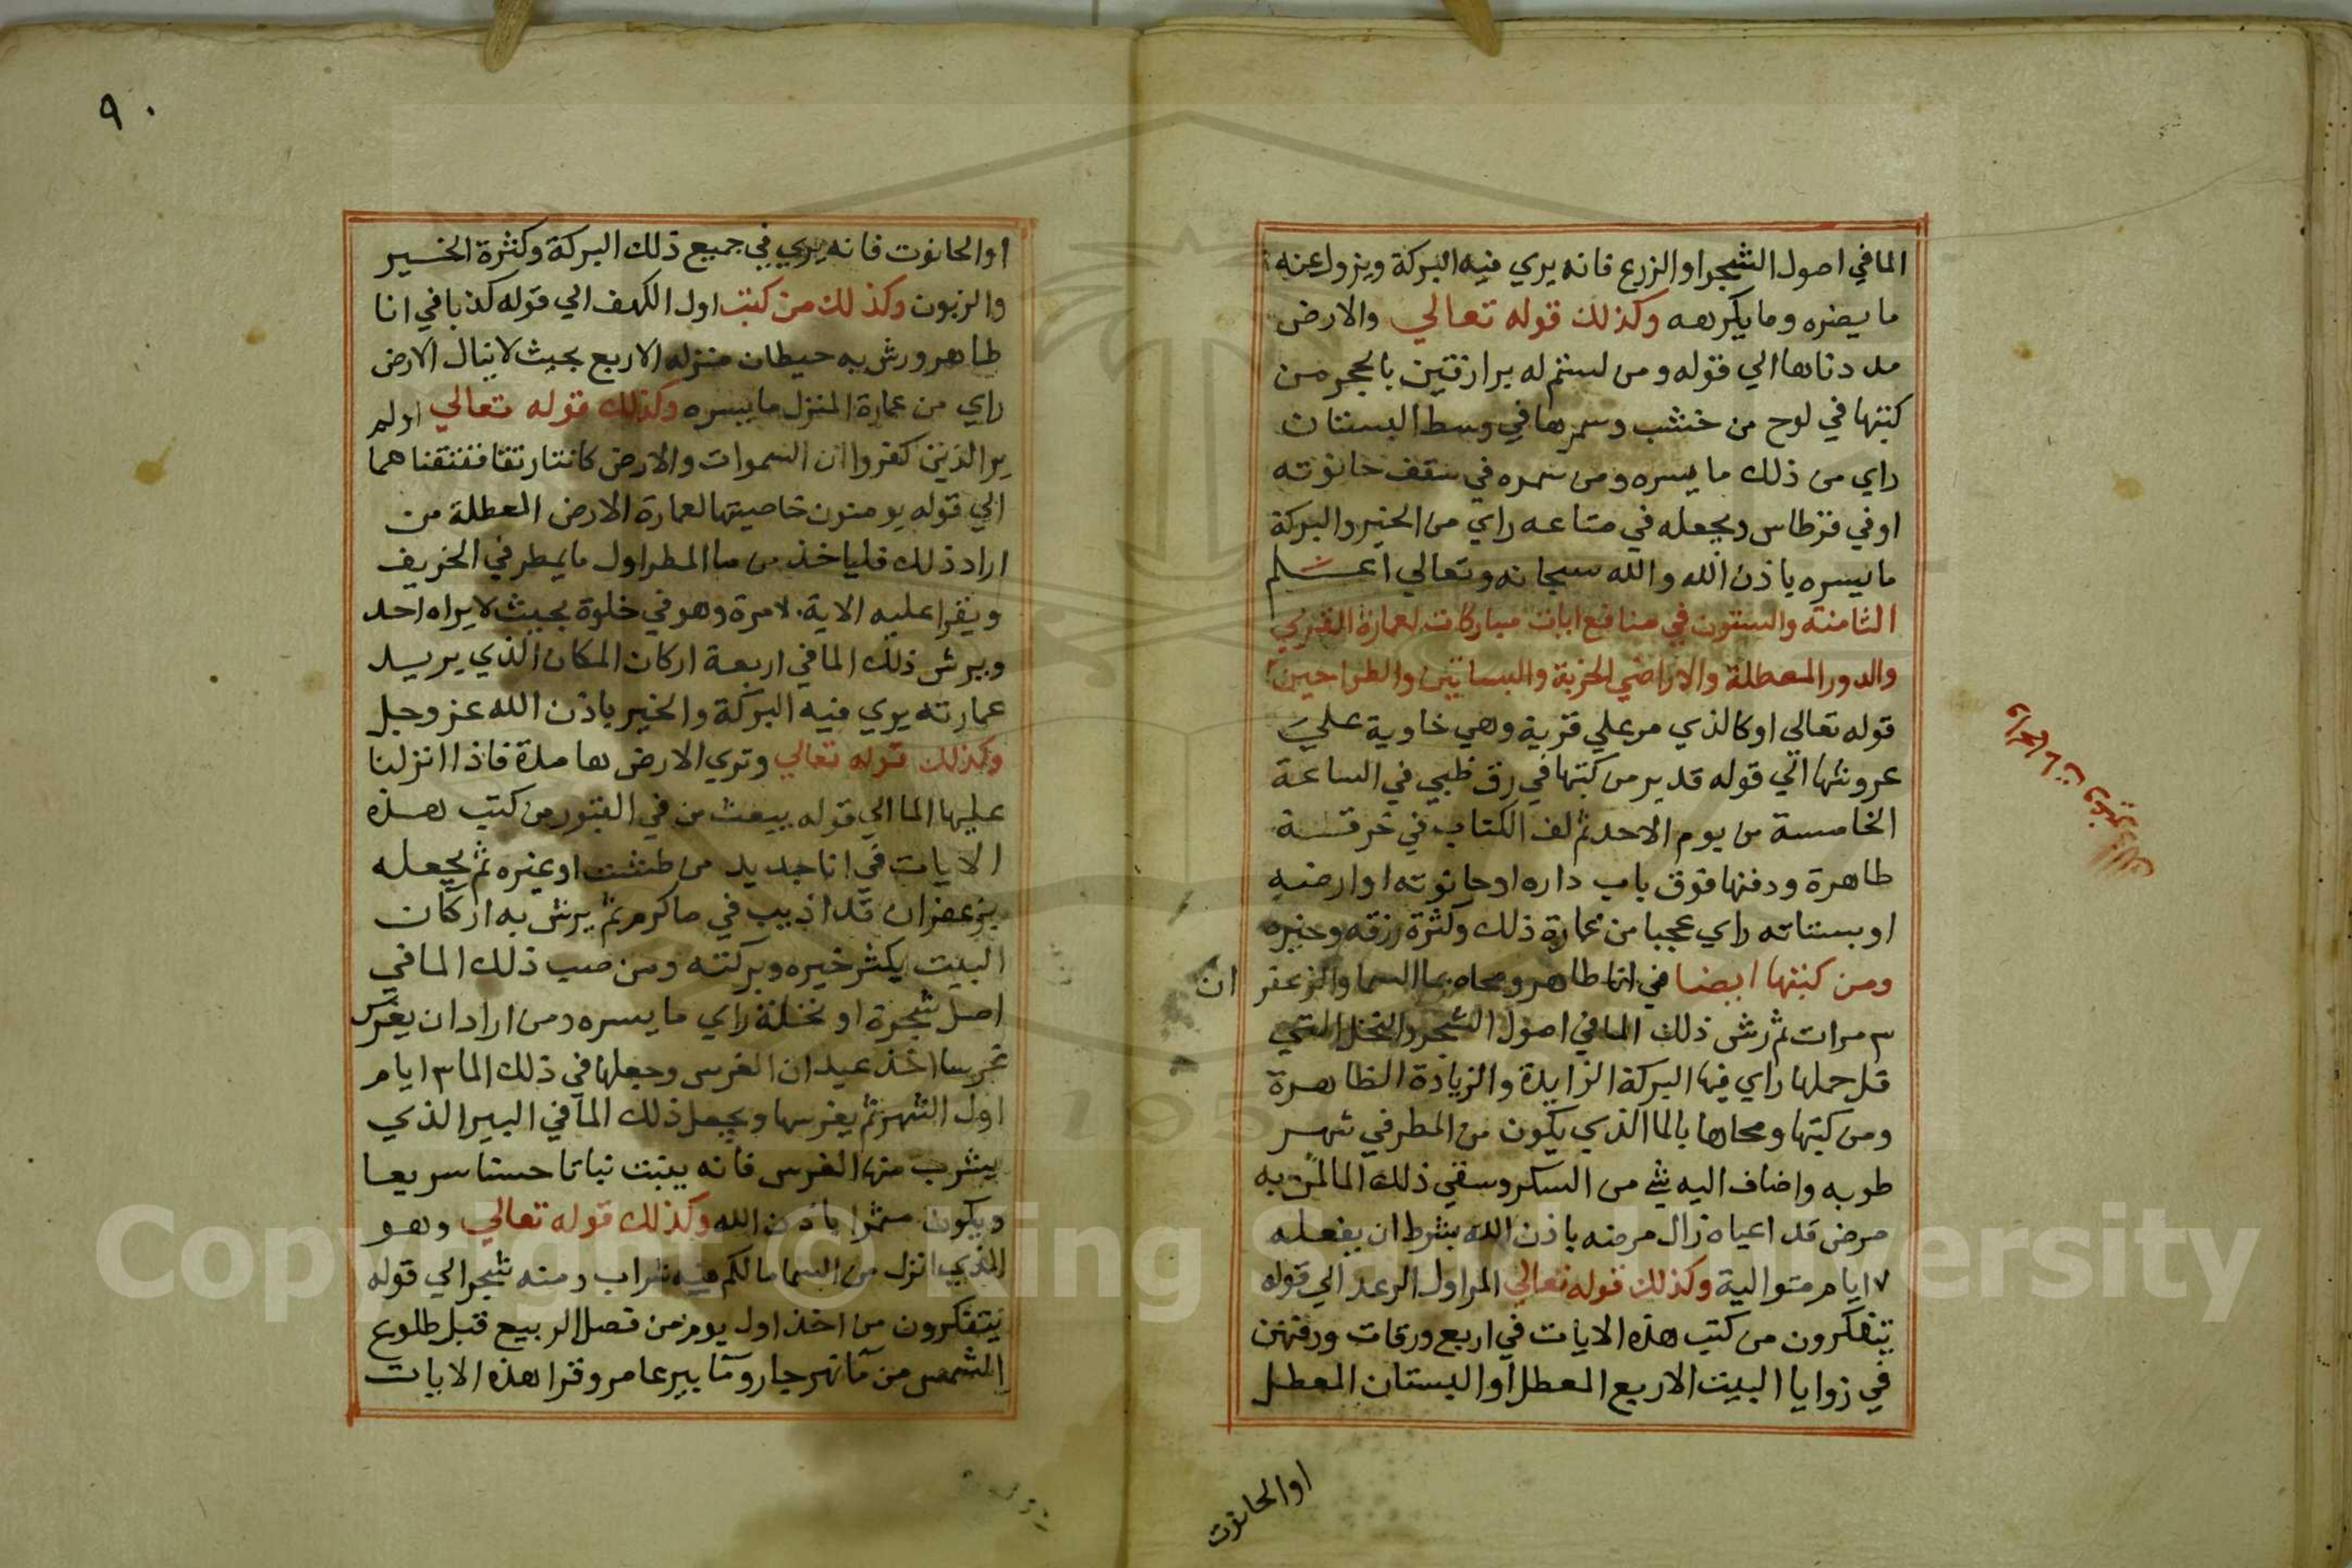 الما في اصول الشجر او الزرع فانه يري فيه البركة ويزول عنه
ما يضره وما يكرهه وكذلك قوله تعالي والارض
مددناها الي قوله ومن لستم له برازقين بالحجر من
كتبها في لوح من خشب وسمرها في وسط البستان
راي من ذلك ما يسره ومن سمره في سقف حانوته
او في قرطاس ويجعله في متاعه راي من الخير والبركة
ما يسره باذن الله والله سبحانه وتعالي اعلم
الثامنة والستون في منافع ايات مباركات لعمارة القري
والدور المعطلة والاراضي الخربة والبساتين والطراحين
قوله تعالى اوكالذي مر علي قرية وهي خاوية علي
عروشها الي قوله قدير من كتبها في رق ظبي في الساعة
الخامسة من يوم الاحد ثم لف الكتاب في خرقة
طاهرة ودفنها فوق باب داره او حانوته او ارضه
او بستانه راي عجبا من عمارة ذلك وكثرة رزقه وخيره
ومن كتبها ايضا في انا طاهر ومحاه بما السما والزعفر ان
٣ مرات ثم رش ذلك الما في اصول الشجر والنخل التي
قل حملها راي فيها البركة الزايدة والزيادة الظاهرة
ومن كتبها ومحاها بالما الذي يكون من المطر في شهر
طوبه واضاف اليه شي من السكر وسقي ذلك الما لمن به
مرض قد اعياه زال مرضه باذن الله بشرط ان يفعله
٧ ايام متوالية وكذلك قوله تعالي المر اول الرعد الي قوله
يتفكرون من كتب هذه الايات في اربع ورقات ودفنهن
في زوايا البيت الاربع المعطل او البستان المعطل
او الحانوت
٩٠
او الحانوت فانه يري في جميع ذلك البركة وكثرة الخير
والزبون وكذلك من كتب اول الكهف الي قوله كذبا في انا
طاهر ورش به حيطان منزله الاربع بحيث لا ينال الارض
راي من عمارة المنزل ما يسره وكذلك قوله تعالي اولم
ير الذين كفروا ان السموات والارض كانتا رتقا ففتقناهما
الي قوله يومنون خاصيتها لعمارة الارض المعطلة من
اراد ذلك فلياخذ من ما المطر اول ما يمطر في الخريف
ويقرا عليه الاية مرة وهو في خلوة بحيث لا يراه احد
ويرش ذلك الما في اربعة اركان المكان الذي يريد
عمارته يري فيه البركة والخير باذن الله عز وجل
وكذلك قوله تعالي وتري الارض هامدة فاذا انزلنا
عليها الما الي قوله يبعث من في القبور من كتب هذه
الايات في انا جديد من طشت او غيره ثم يجعله
بزعفران قد اذيب في ما كرم ثم يرش به اركان
البيت يكثر خيره وبركته ومن صب ذلك الما في
اصل شجرة او نخلة راي ما يسره ومن اراد ان يغرس
غرسا اخذ عيدان الغرس وجعلها في ذلك الما ٣ ايام
اول الشهر ثم يغرسها ويجعل ذلك الما في البير الذي
يشرب منها الغرس فانه ينبت نباتا حسنا سريعا
ويكون مثمرا باذن الله وكذلك قوله تعالي وهو
الذي انزل من السما ما لكم منه شراب ومنه شجر الي قوله
يتفكرون من اخذ اول يوم من فصل الربيع قبل طلوع
الشمس من ما نهر جار وما بير عامر وقرا هذه الايات
Copyright © King Saud University
1957